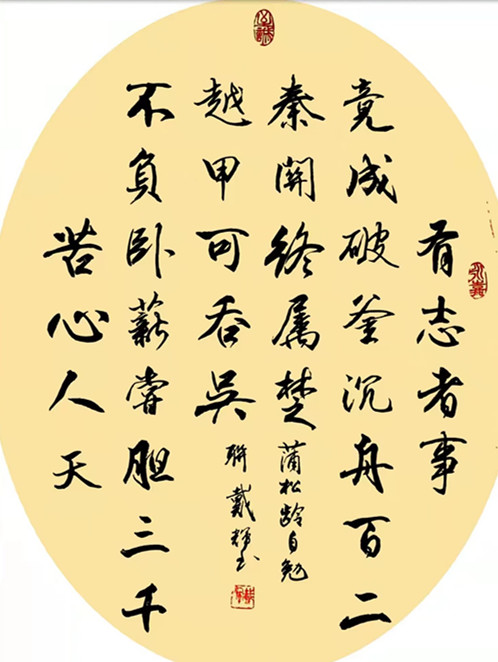 有志者事
竟成破釜沉舟百二
秦關终属楚
苦心人天
不負卧薪嘗胆三千
越甲可吞吴
蒲松龄自勉
联戴辉书